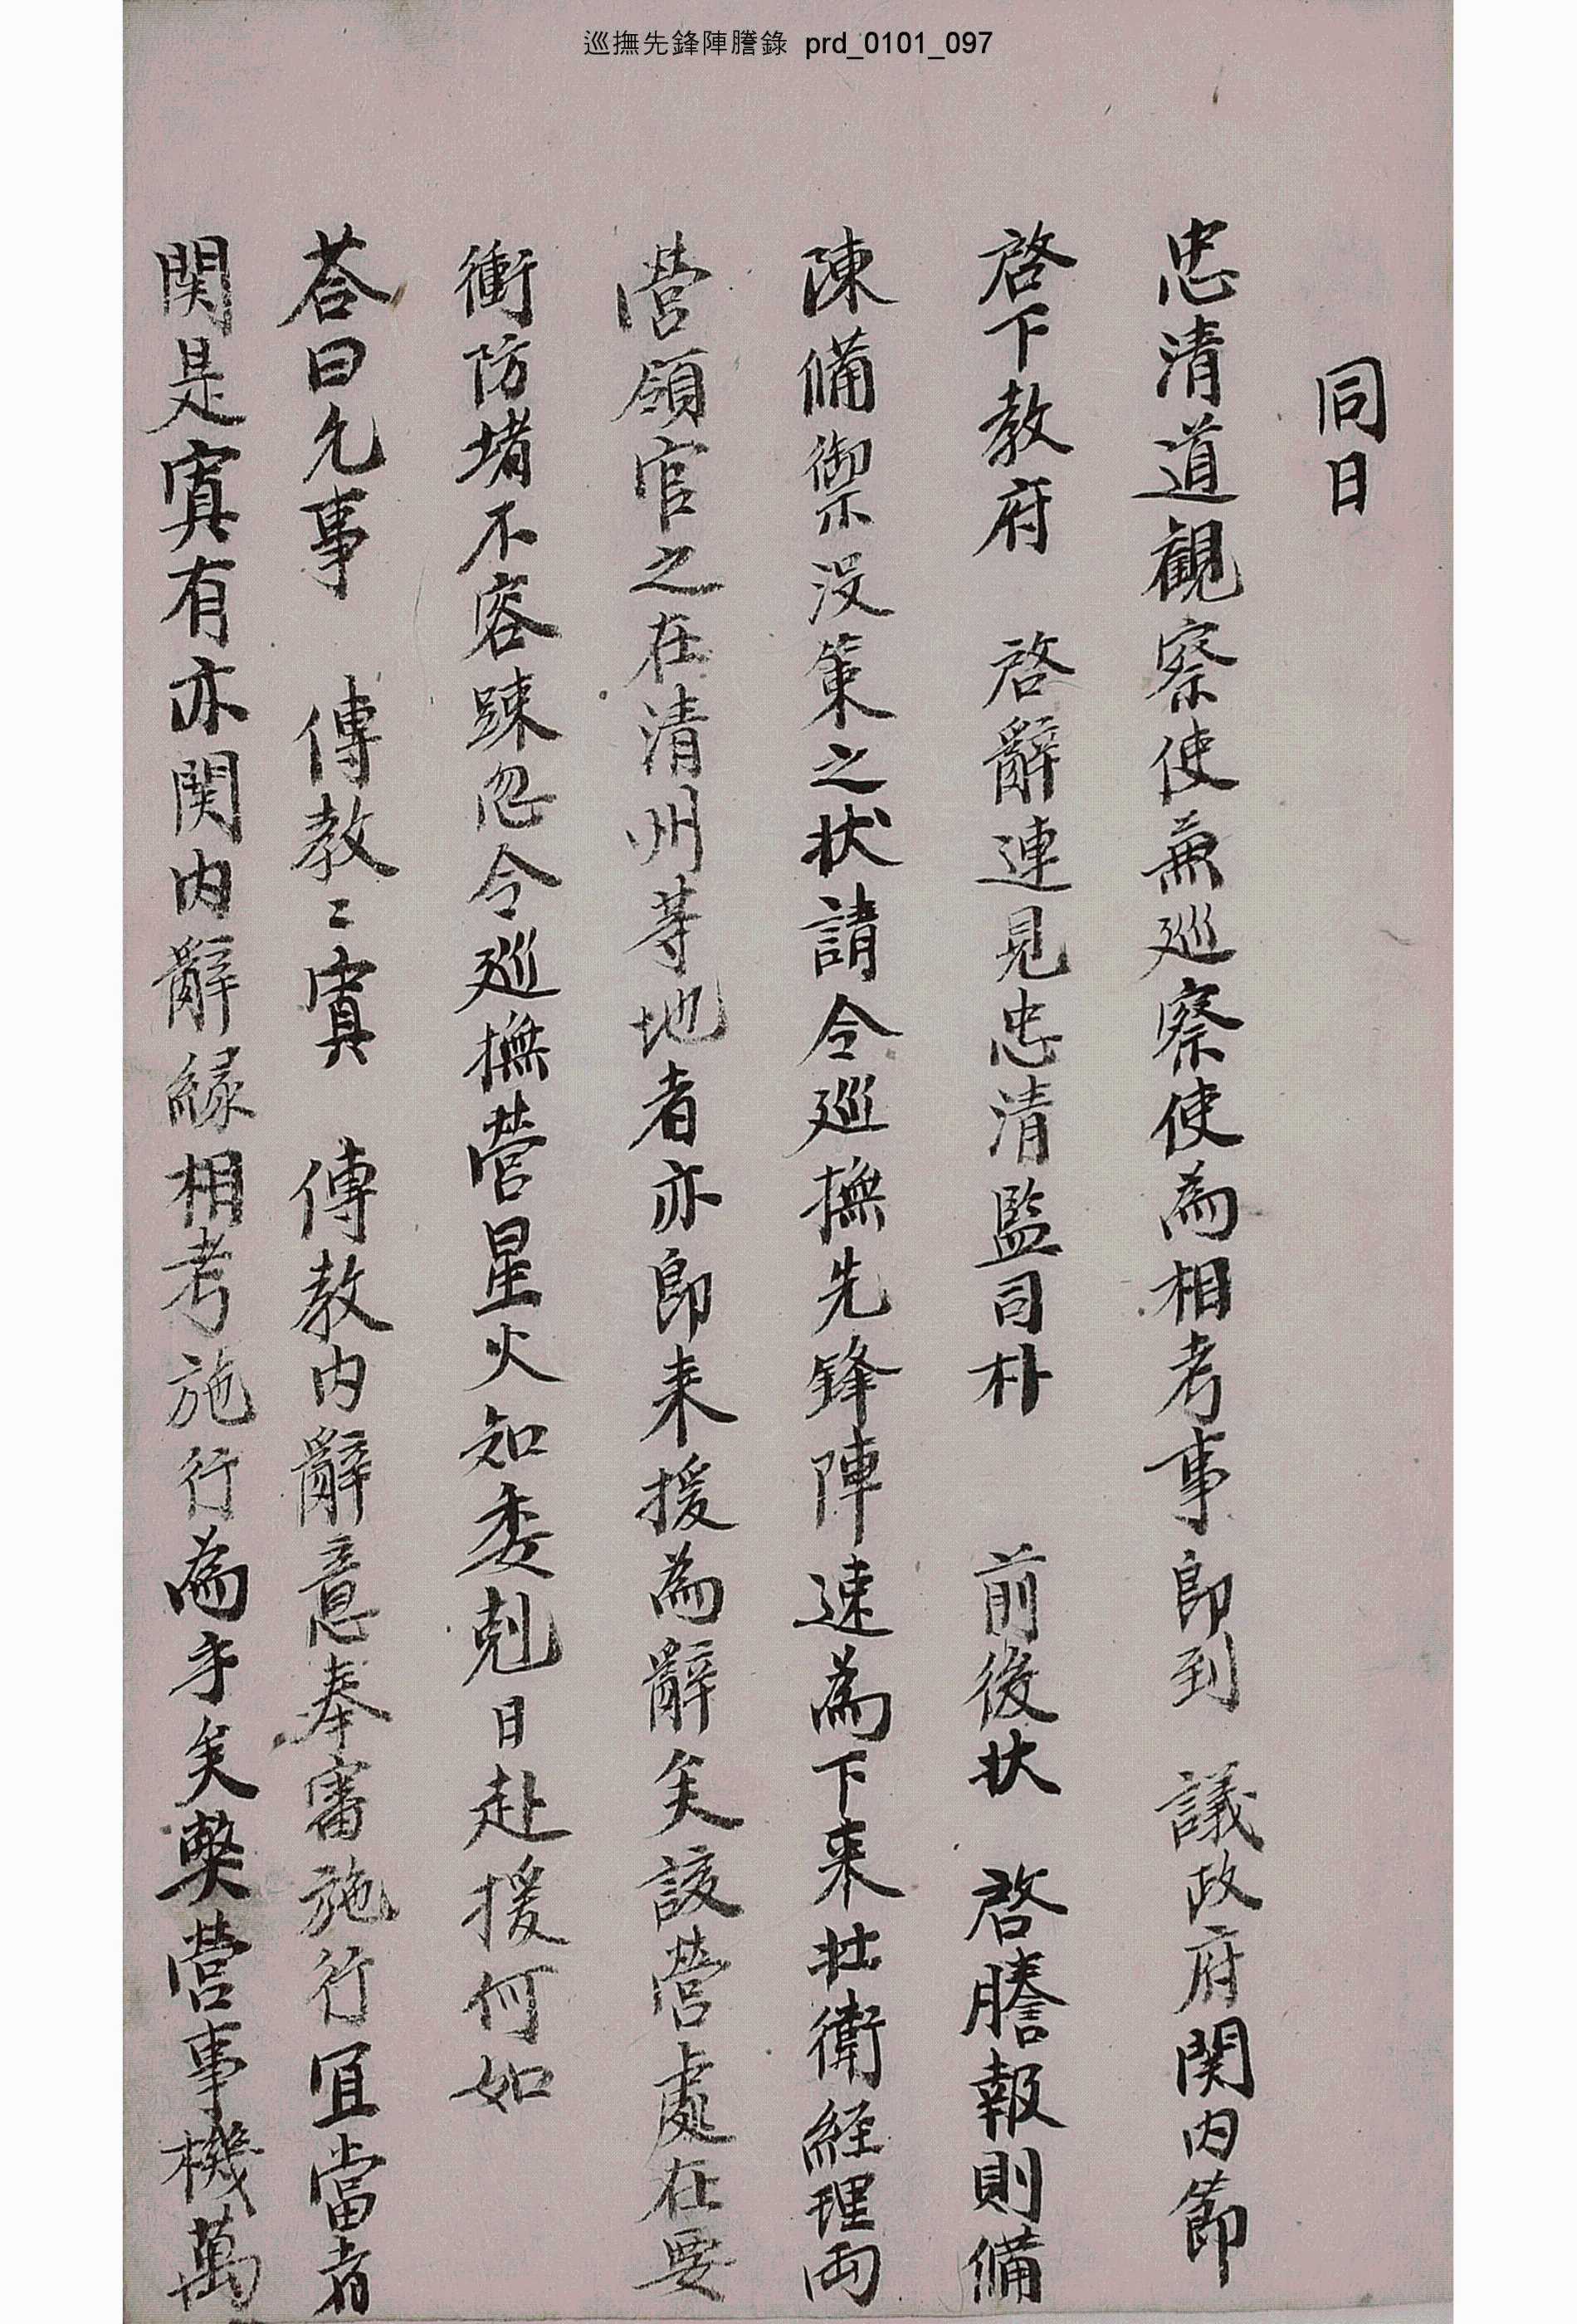 巡撫先鋒陣謄錄 prd_0101_097
同日
忠清道觀察使兼巡察使為相考事即到 議政府関内節
啓下教府 啓辭連見忠清監司朴 前後狀 啓謄報則備
陳備禦沒策之状請令巡撫先鋒陣速為下来壮衛経理両
营領官之在清州等地者亦即来援為辭矣該营處在要
衝防堵不容踈忽令巡撫营星火知委剋日赴援何如
荅曰允事 傳教二寘 傳教内辭意奉審施行宜當者
関是寘有亦関内辭縁相考施行為乎矣弊营事機萬